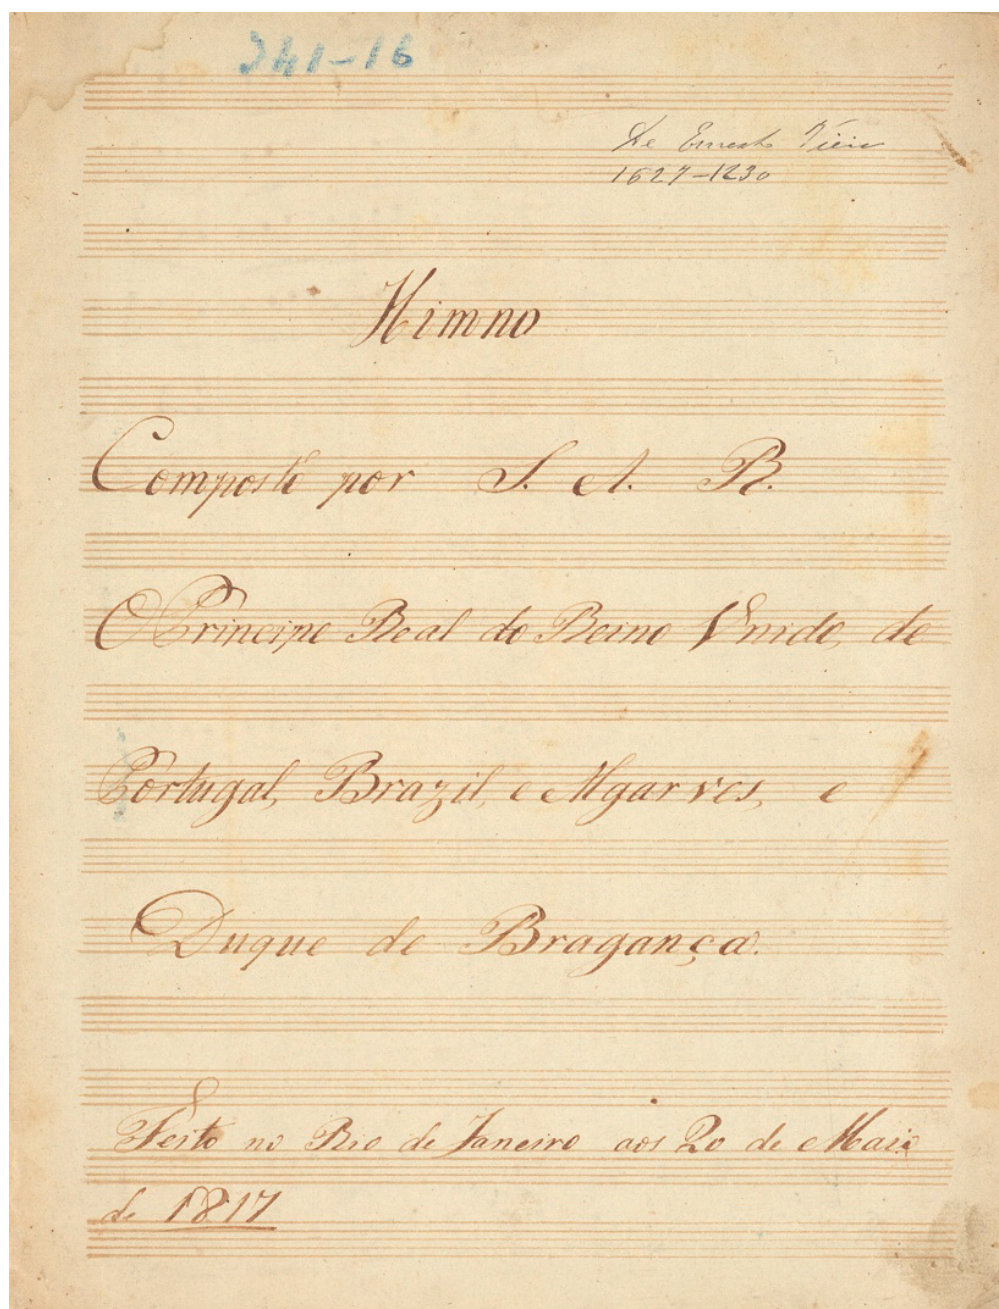 341-16
De Ernesto Vieira
1627-1230
Himno
Composto por S. A. R.
O Principe Real do Reino Unido, de
Portugal, Brazil, e Algarves, e
Duque de Bragança.
Feito no Rio de Janeiro aos 20 de Maio
de 1817